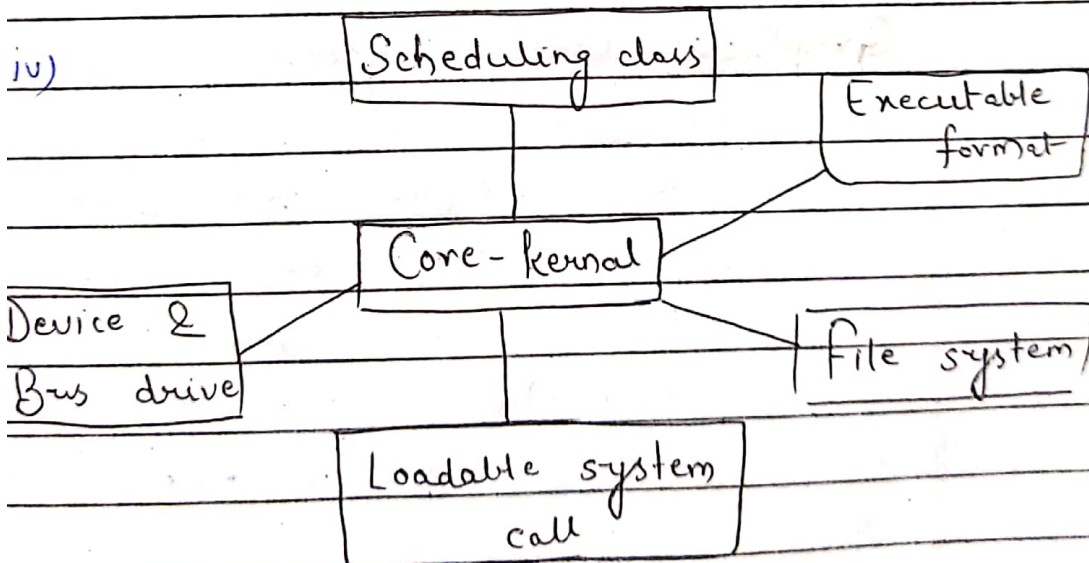 iv)
Scheduling class
Executable
format
Core-kernal
Device &
Bus drive
File system
Loadable system
call